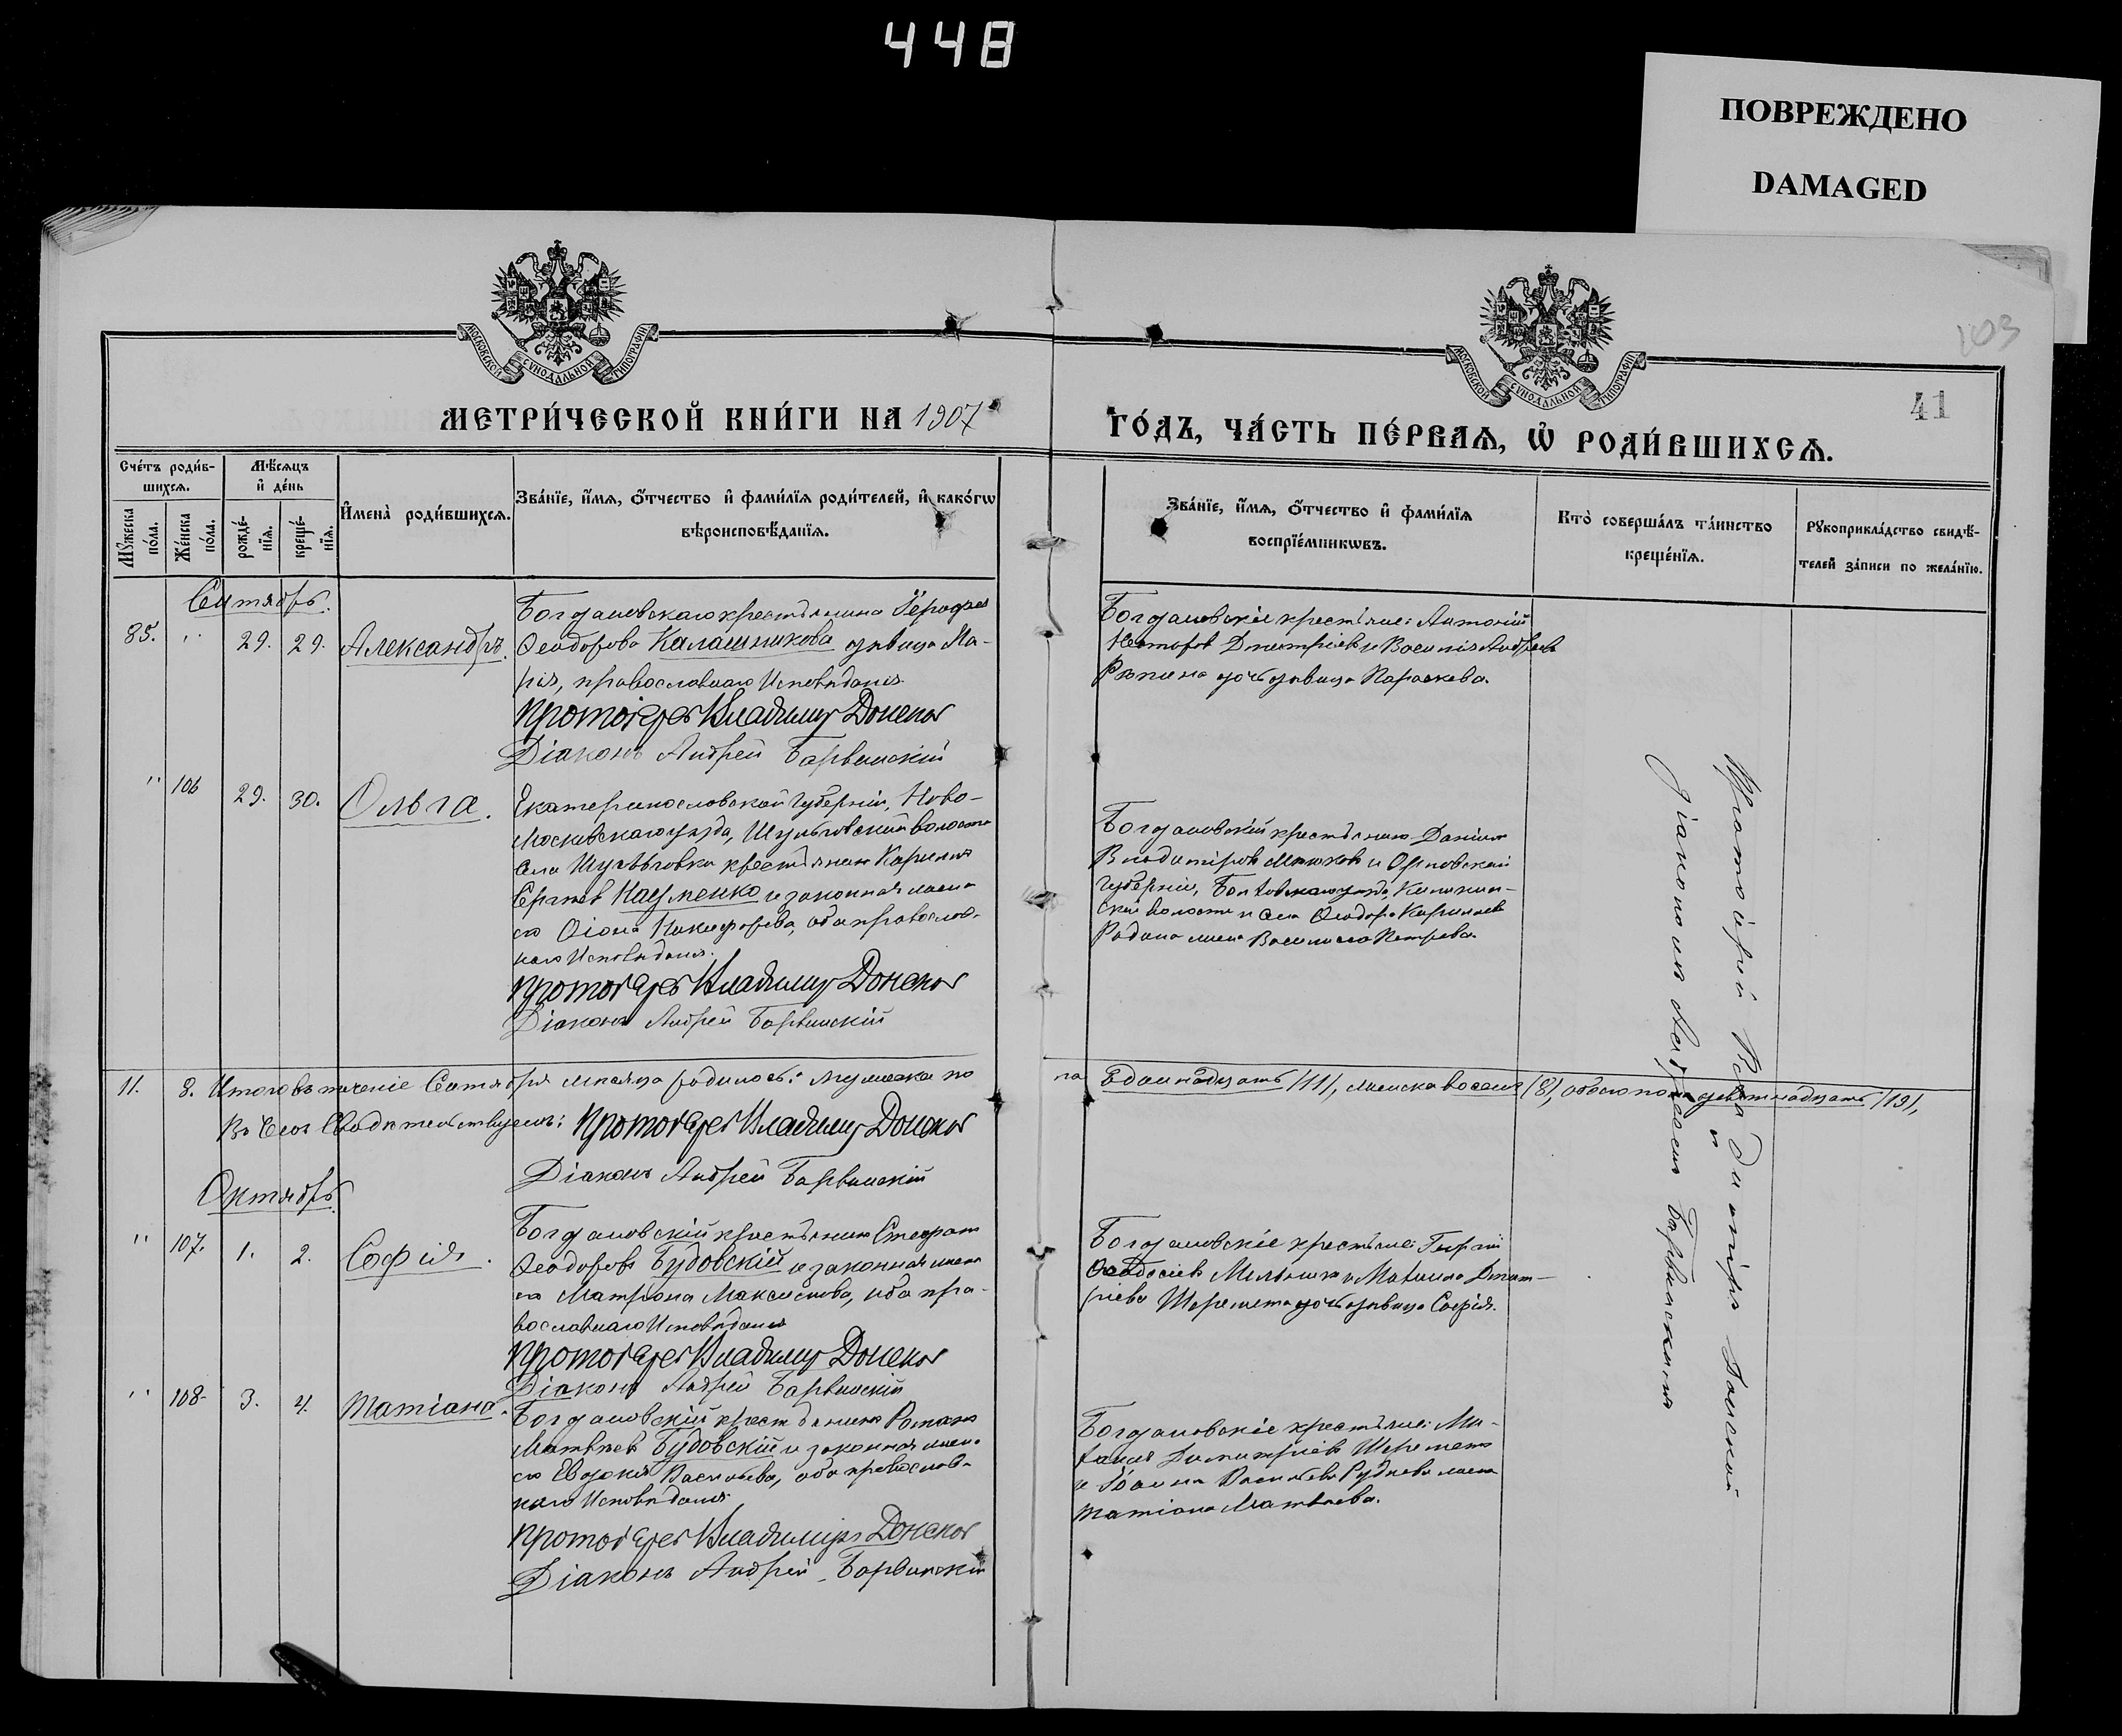 448
ПОВРЕЖДЕНО
DAMAGED
103
41
МОСКОВСКОЙ СУНОДАЛЬНОЙ ТИПОГРАФІИ
МОСКОВСКОЙ СУНОДАЛЬНОЙ ТИПОГРАФІИ
МЕТРИ́ЧЕСКОЙ КНИ́ГИ НА 1907
ГО́ДЪ, ЧА́СТЬ ПЕ́РВАѦ, Ѡ҆ РОДИ́ВШИХСѦ.
Сче́тъ роди́в-
шихсѧ.
Мꙋ́жеска по́ла.
Же́нска по́ла.
Мѣ́сѧцъ
и҆ де́нь
рожде́-
нїѧ.
креще́-
нїѧ.
И҆мена̀ роди́вшихсѧ.
Зва́нїе, и҆́мѧ, ѻ҆́тчество и҆ фами́лїѧ роди́телей, и҆ како́гѡ
вѣроисповѣ́данїѧ.
Зва́нїе, и҆́мѧ, ѻ҆́тчество и҆ фами́лїѧ
воспрїе́мникѡвъ.
Кто̀ соверша́лъ та́инство
креще́нїѧ.
Рꙋкоприкла́дство свидѣ́-
телей за́писи по жела́нїю.
Сентябрь.
85. " 29. 29. Александръ.
Богдановскаго крестьянина
Ѳеодорова Калашникова дѣвица Ма-
рія, православнаго Исповѣданія.
Протоіерей Владимиръ Донской
Діаконъ Андрей Барвинскій
Богдановскіе крестьяне: Антоній
Несторовъ Дмитріевъ и
Рѣпина дочь дѣвица Параскева.
" 106 29. 30. Ольга.
Екатеринославской Губерніи, Ново-
московскаго уѣзда, волости
села крестьянинъ Корнилій
Сергѣевъ Науменко и законная жена
его Никифорова, оба православ-
наго Исповѣданія.
Протоіерей Владимиръ Донской
Діаконъ Андрей Барвинскій
Богдановскій крестьянинъ Даніилъ
Владиміровъ и Орловской
Губерніи, уѣзда,
ской волости и села Ѳеодора Корнилиева
Родина жена Василиса Петрова.
11. 8. Итого въ теченіе Сентября мѣсяца родилось: мужеска по
ла одиннадцать /11/, женска восемь /8/, обоего пола девятнадцать /19/,
Въ чемъ Свидѣтельствуемъ: Протоіерей Владимиръ Донской
Діаконъ Андрей Барвинскій
Октябрь.
" 107. 1. 2. Софія.
Богдановскій крестьянинъ Стефанъ
Ѳеодоровъ Будовскій и законная жена
его Матрона Максимова, оба пра-
вославнаго Исповѣданія
Протоіерей Владимиръ Донской
Діаконъ Андрей Барвинскій
Богдановскіе крестьяне: Георгій
Ѳеодосіевъ Мельникъ и Дмит-
ріева Шеремета дочь дѣвица Софія.
" 108. 3. 4. Татіана.
Богдановскій крестьянинъ Романъ
Матвѣевъ Будовскій и законная жена
его Евдокія Васильева, оба православ-
наго Исповѣданія
Протоіерей Владимиръ Донской
Діаконъ Андрей Барвинскій
Богдановскіе крестьяне: Ми-
хаилъ Димитріевъ Шереметъ
и Іоанна Васильева Руднева жена
Татіана Матвѣева.
Протоіерей Владиміръ Донской
и
діакономъ Андреемъ Барвинскимъ